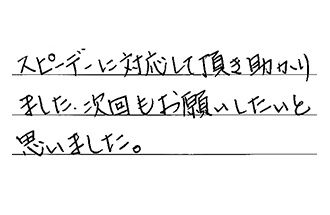 スピーデーに対応して頂き助かり
ました.次回もお願いしたいと
思いました。